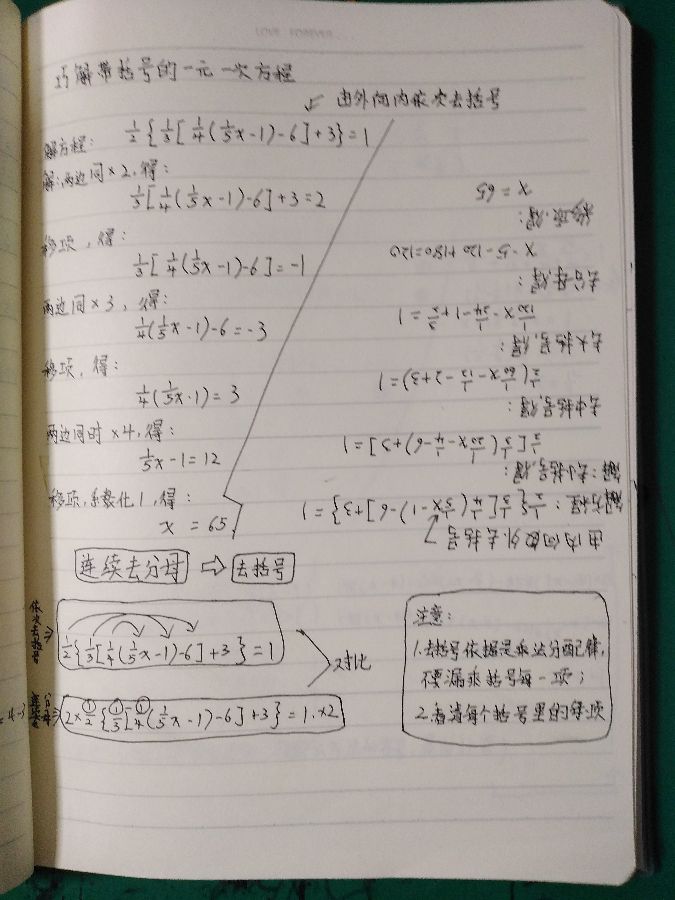 巧解带括号的一元一次方程
由外向内依次去括号
解方程: 1/2{1/3[1/4(1/5x-1)-6]+3}=1
解:两边同×2,得:
1/3[1/4(1/5x-1)-6]+3=2
移项,得:
1/3[1/4(1/5x-1)-6]=-1
两边同×3,得:
1/4(1/5x-1)-6=-3
移项,得:
1/4(1/5x-1)=3
两边同时×4,得:
1/5x-1=12
移项,系数化1,得:
x=65
由内向外去括号
解方程:1/2{1/3[1/4(1/5x-1)-6]+3}=1
解:去小括号,得:
1/2[1/3(1/20x-1/4-6)+3]=1
去中括号,得:
1/2(1/60x-1/12-2+3)=1
去大括号,得:
1/120x-1/24-1+3/2=1
去分母,得:
x-5-120+180=120
移项,得:
x=65
连续去分母 ⇨ 去括号
依次去括号⇒
1/2{1/3[1/4(1/5x-1)-6]+3}=1
对比
2×1/2{1/3[1/4(1/5x-1)-6]+3}=1×2
注意:
1.去括号依据是乘法分配律,
不要漏乘括号每一项;
2.看清每个括号里的每项